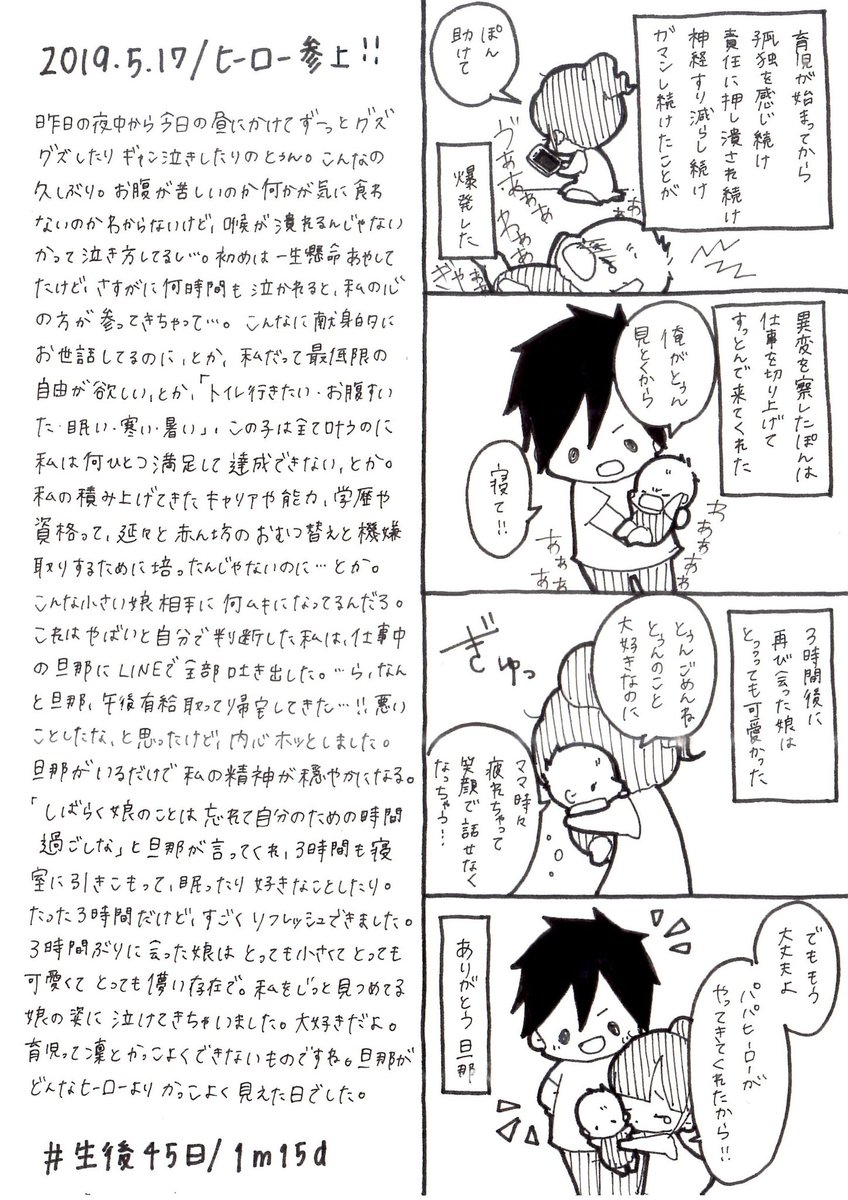 2019.5.17/ヒーロー参上!!
昨日の夜中から今日の昼にかけてずーっとグズ
グズしたりギャン泣きしたりのとぅん。こんなの
久しぶり。お腹が苦しいのか何かが気に食わ
ないのかわからないけど、喉が潰れるんじゃない
かって泣き方してるし…。初めは一生懸命あやして
たけど、さすがに何時間も泣かれると、私の心
の方が参ってきちゃって…。こんなに献身的に
お世話してるのに、とか、私だって最低限の
自由が欲しい、とか、「トイレ行きたい・お腹すい
た・眠い・寒い・暑い」、この子は全て叶うのに
私は何ひとつ満足して達成できない、とか。
私の積み上げてきたキャリアや能力、学歴や
資格って、延々と赤ん坊のおむつ替えと機嫌
取りするために培ったんじゃないのに…とか。
こんな小さい娘相手に何ムキになってるんだろ。
これはやばいと自分で判断した私は、仕事中
の旦那にLINEで全部吐き出した。…ら、なん
と旦那、午後有給取って帰宅してきた…!!悪い
ことしたな、と思ったけど、内心ホッとしました。
旦那がいるだけで私の精神が穏やかになる。
「しばらく娘のことは忘れて自分のための時間
過ごしな」と旦那が言ってくれ、3時間も寝
室に引きこもって、眠ったり好きなことしたり。
たった3時間だけど、すごくリフレッシュできました。
3時間ぶりに会った娘はとっても小さくてとっても
可愛くてとっても儚い存在で。私をじっと見つめてる
娘の姿に泣けてきちゃいました。大好きだよ。
育児って凛とかっこよくできないものですね。旦那が
どんなヒーローよりかっこよく見えた日でした。
#生後45日/1m15d
育児が始まってから
孤独を感じ続け
責任に押し潰され続け
神経すり減らし続け
ガマンし続けたことが
ぽん
助けて
爆発した
ヴぁあぁぁぁ
わぁぁぁ
ぎゃぁぁ
異変を察したぽんは
仕事を切り上げて
すっとんで来てくれた
俺がとぅん
見とくから
寝て!!
わぁぁぁぁ
あぁぁぁ
3時間後に
再び会った娘は
とっっっても可愛かった
とぅんごめんね
とぅんのこと
大好きなのに
ぎゅっ
ママ時々
疲れちゃって
笑顔で話せなく
なっちゃう…
でももう
大丈夫よ
パパヒーローが
やってきてくれたから!!
ありがとう旦那